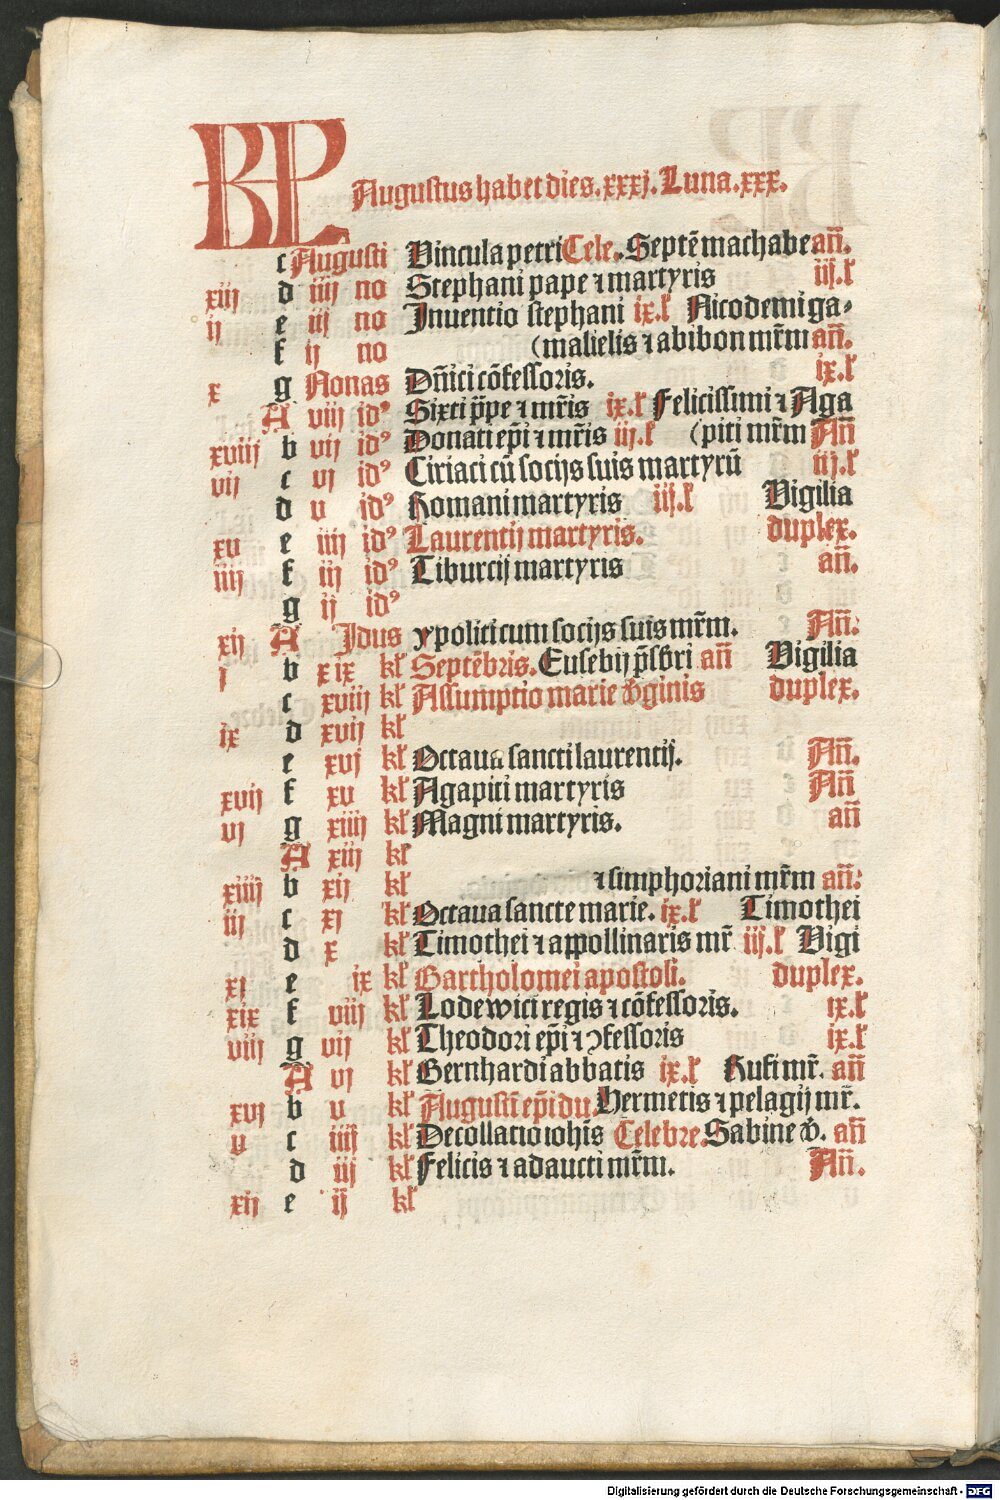 KL
Augustus habet dies.xxxj.Luna.xxx.
c Augusti Vincula petri Cele. Septē machabe. an̄.
xiij d iiij no Stephani pape ⁊ martyris iij.lꝰ
ij e iij no Jnuentio stephani ix.l Nicodemi ga-
f ij no (malielis ⁊ abibon mr̄m an̄.
x g Nonas Dn̄ici cōfessoris. ix.l
A viij idꝰ Sixti p̄pe ⁊ mr̄is ix.l Felicissimi ⁊ Aga
xviij b vij idꝰ Donati ep̄i ⁊ mr̄is iij.l (piti mr̄m An̄
vij c vj idꝰ Ciriaci cū socijs suis martyrū iij.l
d v idꝰ Romani martyris iij.l Vigilia
xv e iiij idꝰ Laurentij martyris. duplex.
iiij f iij idꝰ Tiburcij martyris an̄.
g ij idꝰ
xij A Jdus ypoliti cum socijs suis mr̄m. An̄.
j b xix kl Septēbris. Eusebij p̄sbri an̄ Vigilia
c xviij kl Assumptio marie v̓ginis duplex.
ix d xvij kl
e xvj kl Octaua sancti laurentij. An̄.
xvij f xv kl Agapiti martyris An̄
vj g xiiij kl Magni martyris. an̄
A xiij kl
xiiij b xij kl ⁊ simphoriani mr̄m an̄.
iij c xj kl Octaua sancte marie. ix.l Timothei
d x kl Timothei ⁊ appollinaris mr̄ iij.l Vigi
xj e ix kl Bartholomei apostoli. duplex.
xix f viij kl Lodewici regis ⁊ cōfessoris. ix.l
viij g vij kl Theodori ep̄i ⁊ ↄfessoris ix.l
A vj kl Bernhardi abbatis ix.l Rufi mr̄. an̄
xvj b v kl Augustī ep̄i du. Hermetis ⁊ pelagij mr̄.
v c iiij kl Decollatio ioh̄is Celebre. Sabine v̓. an̄
d iij kl Felicis ⁊ adaucti mr̄m. An̄.
xij e ij kl
Digitalisierung gefördert durch die Deutsche Forschungsgemeinschaft - DFG